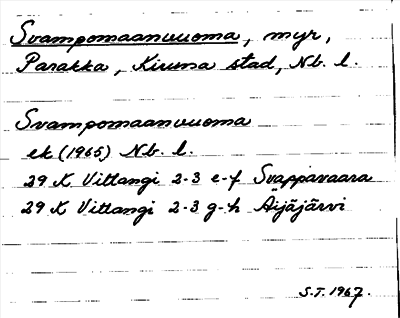 Svampomaanvuoma, myr,
Parakka, Kiruna stad, Nb. l.
Svampomaanvuoma
ek (1965) Nb. l.
29 K Vittangi 2-3 e-f Svappavaara
29 K Vittangi 2-3 g-h Äijäjärvi
S.T. 1967.